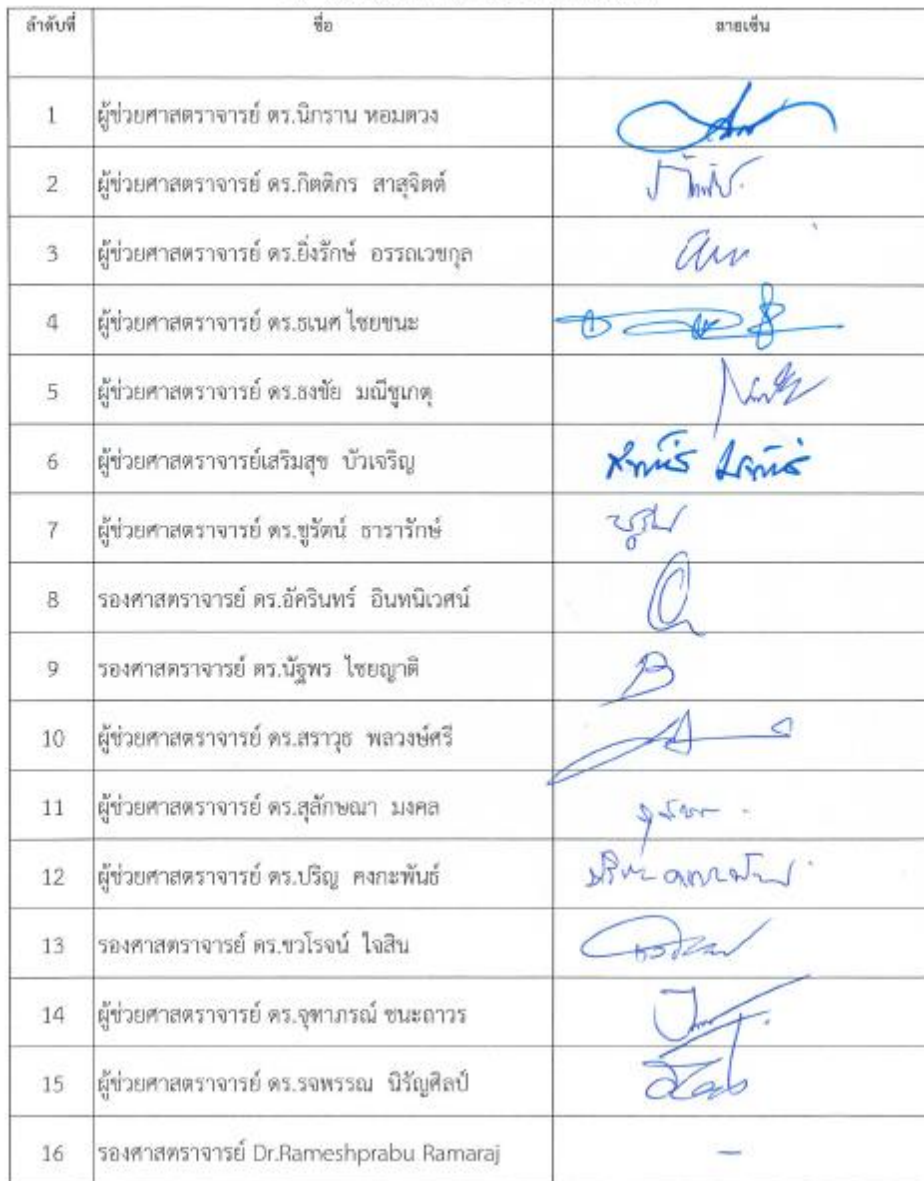 ลำดับที่ ชื่อ ลายเซ็น
1 ผู้ช่วยศาสตราจารย์ ดร.นิกราน หอมดวง
2 ผู้ช่วยศาสตราจารย์ ดร.กิตติกร สาสุจิตต์
3 ผู้ช่วยศาสตราจารย์ ดร.ยิ่งรักษ์ อรรถเวชกุล
4 ผู้ช่วยศาสตราจารย์ ดร.ธเนศ ไชยชนะ
5 ผู้ช่วยศาสตราจารย์ ดร.ธงชัย มณีชูเกตุ
6 ผู้ช่วยศาสตราจารย์เสริมสุข บัวเจริญ
7 ผู้ช่วยศาสตราจารย์ ดร.ชูรัตน์ ธารารักษ์
8 รองศาสตราจารย์ ดร.อัครินทร์ อินทนิเวศน์
9 รองศาสตราจารย์ ดร.นัฐพร ไชยญาติ
10 ผู้ช่วยศาสตราจารย์ ดร.สราวุธ พลวงษ์ศรี
11 ผู้ช่วยศาสตราจารย์ ดร.สุลักษณา มงคล
12 ผู้ช่วยศาสตราจารย์ ดร.ปริญ คงกะพันธ์
13 รองศาสตราจารย์ ดร.ชวโรจน์ ใจสิน
14 ผู้ช่วยศาสตราจารย์ ดร.จุฑาภรณ์ ชนะถาวร
15 ผู้ช่วยศาสตราจารย์ ดร.รจพรรณ นิรัญศิลป์
16 รองศาสตราจารย์ Dr.Rameshprabu Ramaraj –